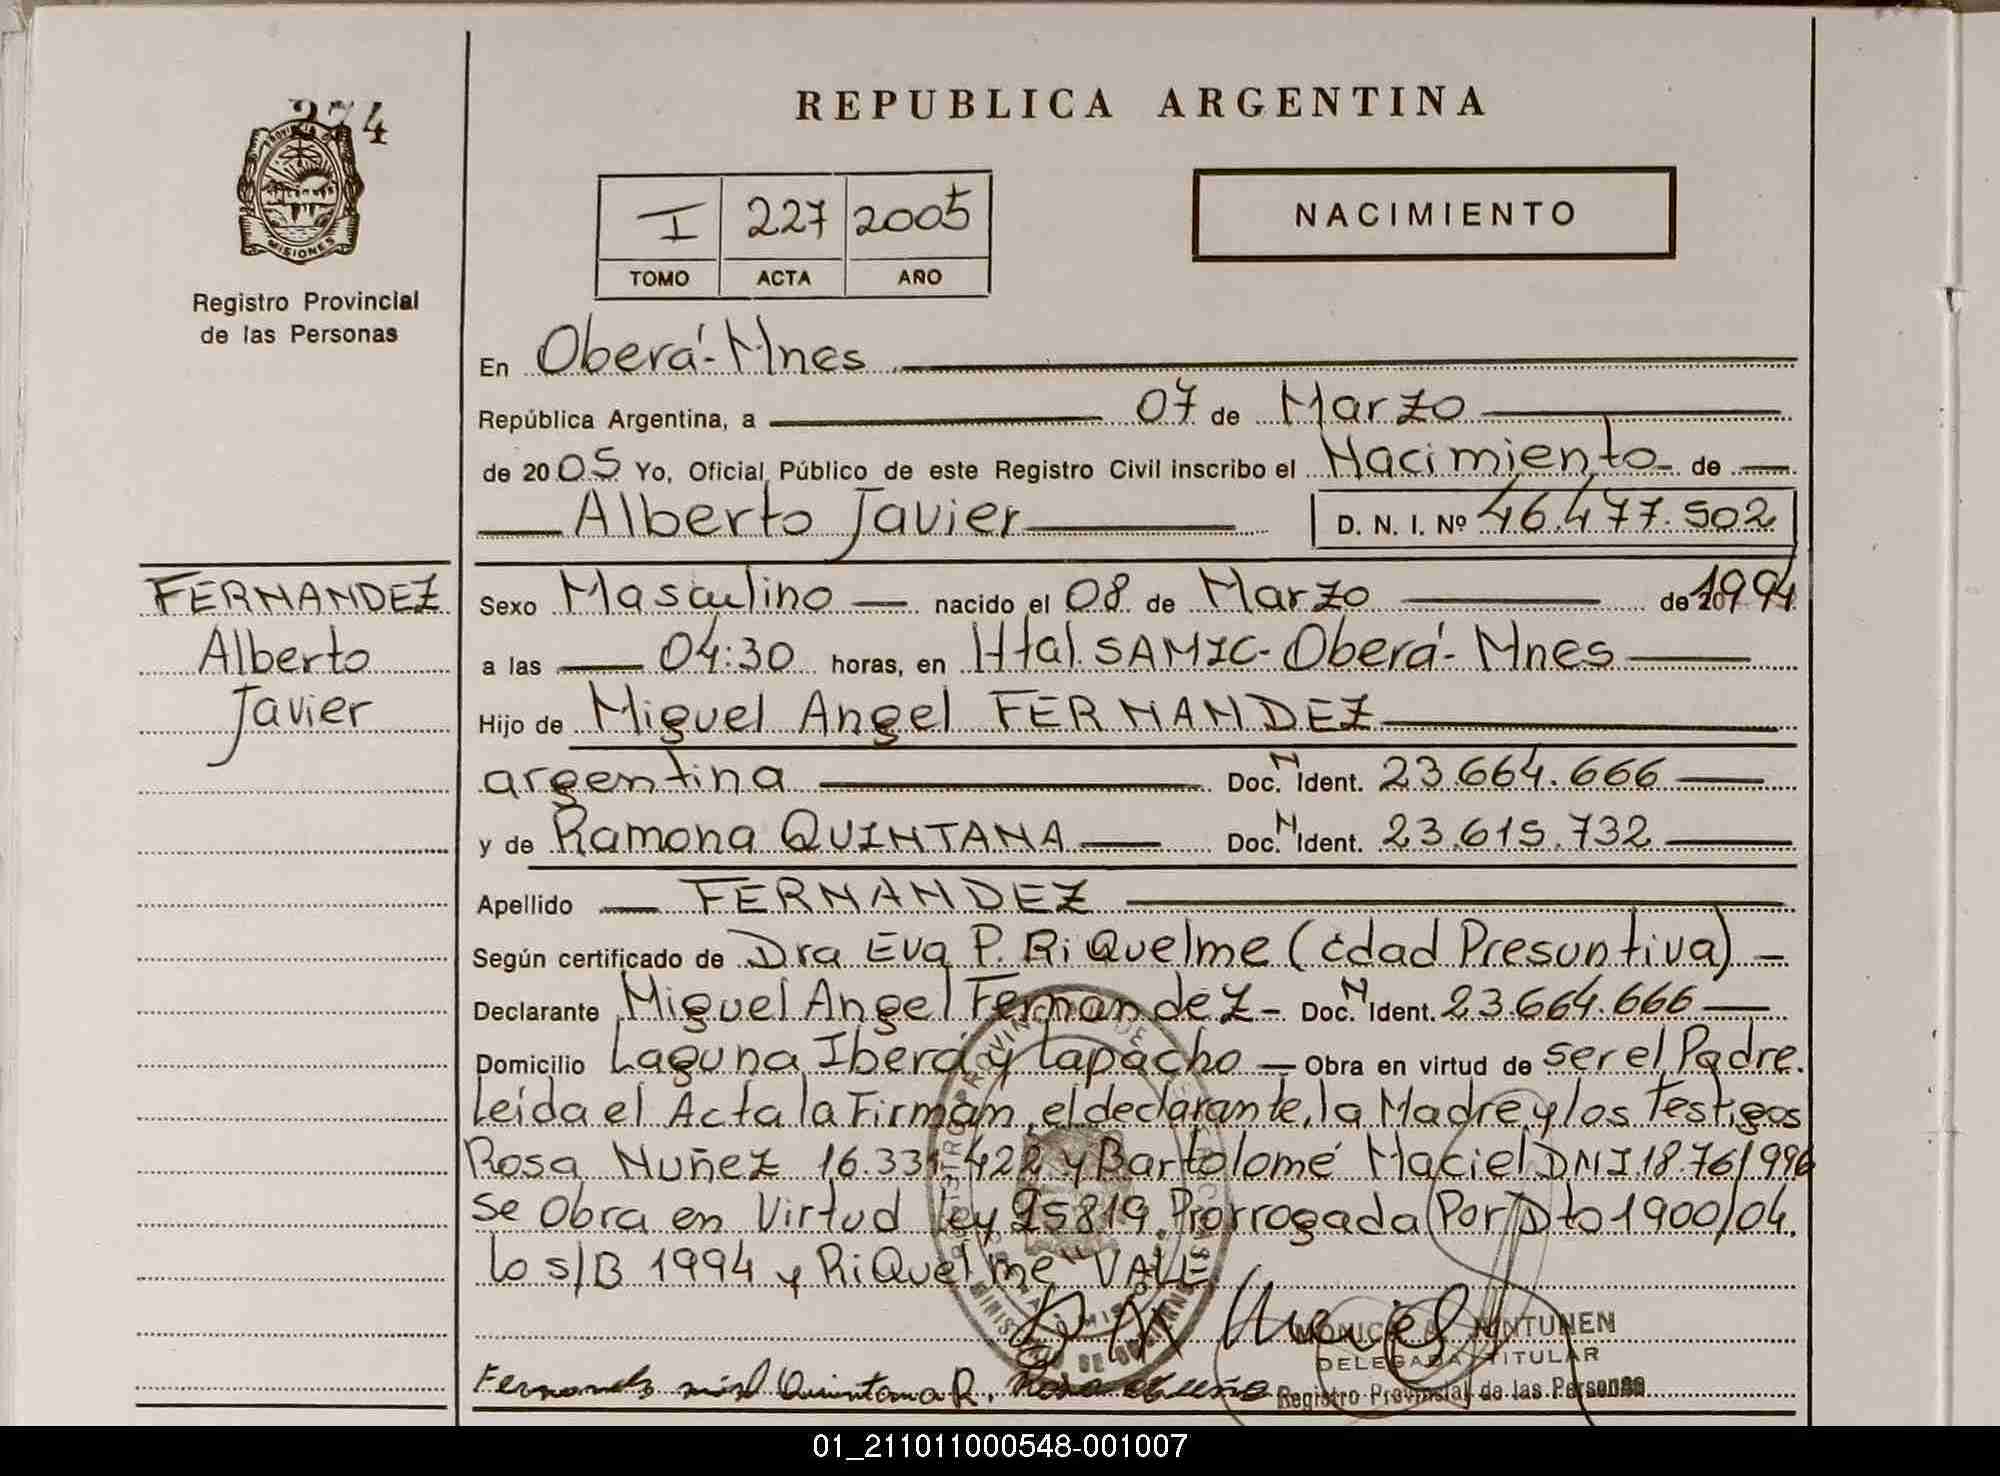 274
REPUBLICA ARGENTINA
PROVINCIA
MISIONES
I 227 2005
TOMO ACTA AÑO
NACIMIENTO
Registro Provincial
de las Personas
En Oberá-Mnes
República Argentina, a 07 de Marzo
de 2005 Yo, Oficial Público de este Registro Civil inscribo el Nacimiento de
Alberto Javier D. N. I. Nº 46.477.502
FERNANDEZ
Alberto
Javier
Sexo Masculino nacido el 08 de Marzo de 1994
a las 04:30 horas, en Htal. SAMIC-Oberá-Mnes
Hijo de Miguel Angel FERNANDEZ
argentina Doc. N Ident. 23.664.666
y de Ramona QUINTANA Doc. N Ident. 23.615.732
Apellido FERNANDEZ
Según certificado de Dra Eva P. RiQuelme (edad Presuntiva)
Declarante Miguel Angel Fernandez - Doc. N Ident. 23.664.666
Domicilio Laguna Iberá y Tapacho Obra en virtud de ser el Padre.
Leída el Acta la Firman, el declarante, la Madre y los Testigos
Rosa Nuñez 16.331.422 y Bartolomé Maciel DNI 18.761996
se Obra en Virtud ley 25819. Prorrogada Por Dto 1900/04.
lo s/B 1994 y RiQuelme "VALE
MONICA ANTUNEN
DELEGADA TITULAR
Quintana R.
Registro Provincial de las Personas
01_211011000548-001007